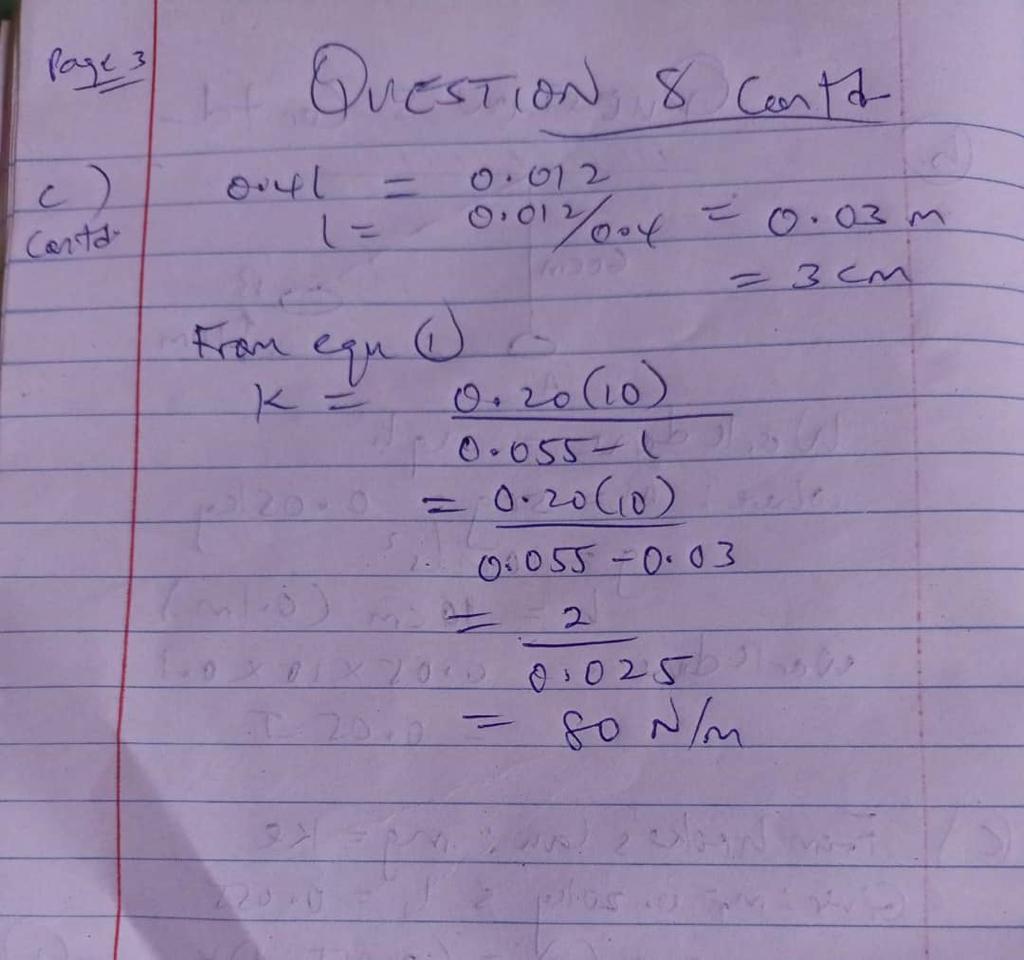 Page 3
QUESTION 8 Contd
c) 0.04l = 0.012
Contd l = 0.012/0.04 = 0.03 m
= 3 cm
From equ (1)
K = 0.20(10)
0.055 - l
= 0.20(10)
0.055 - 0.03
= 2
0.025
= 80 N/m